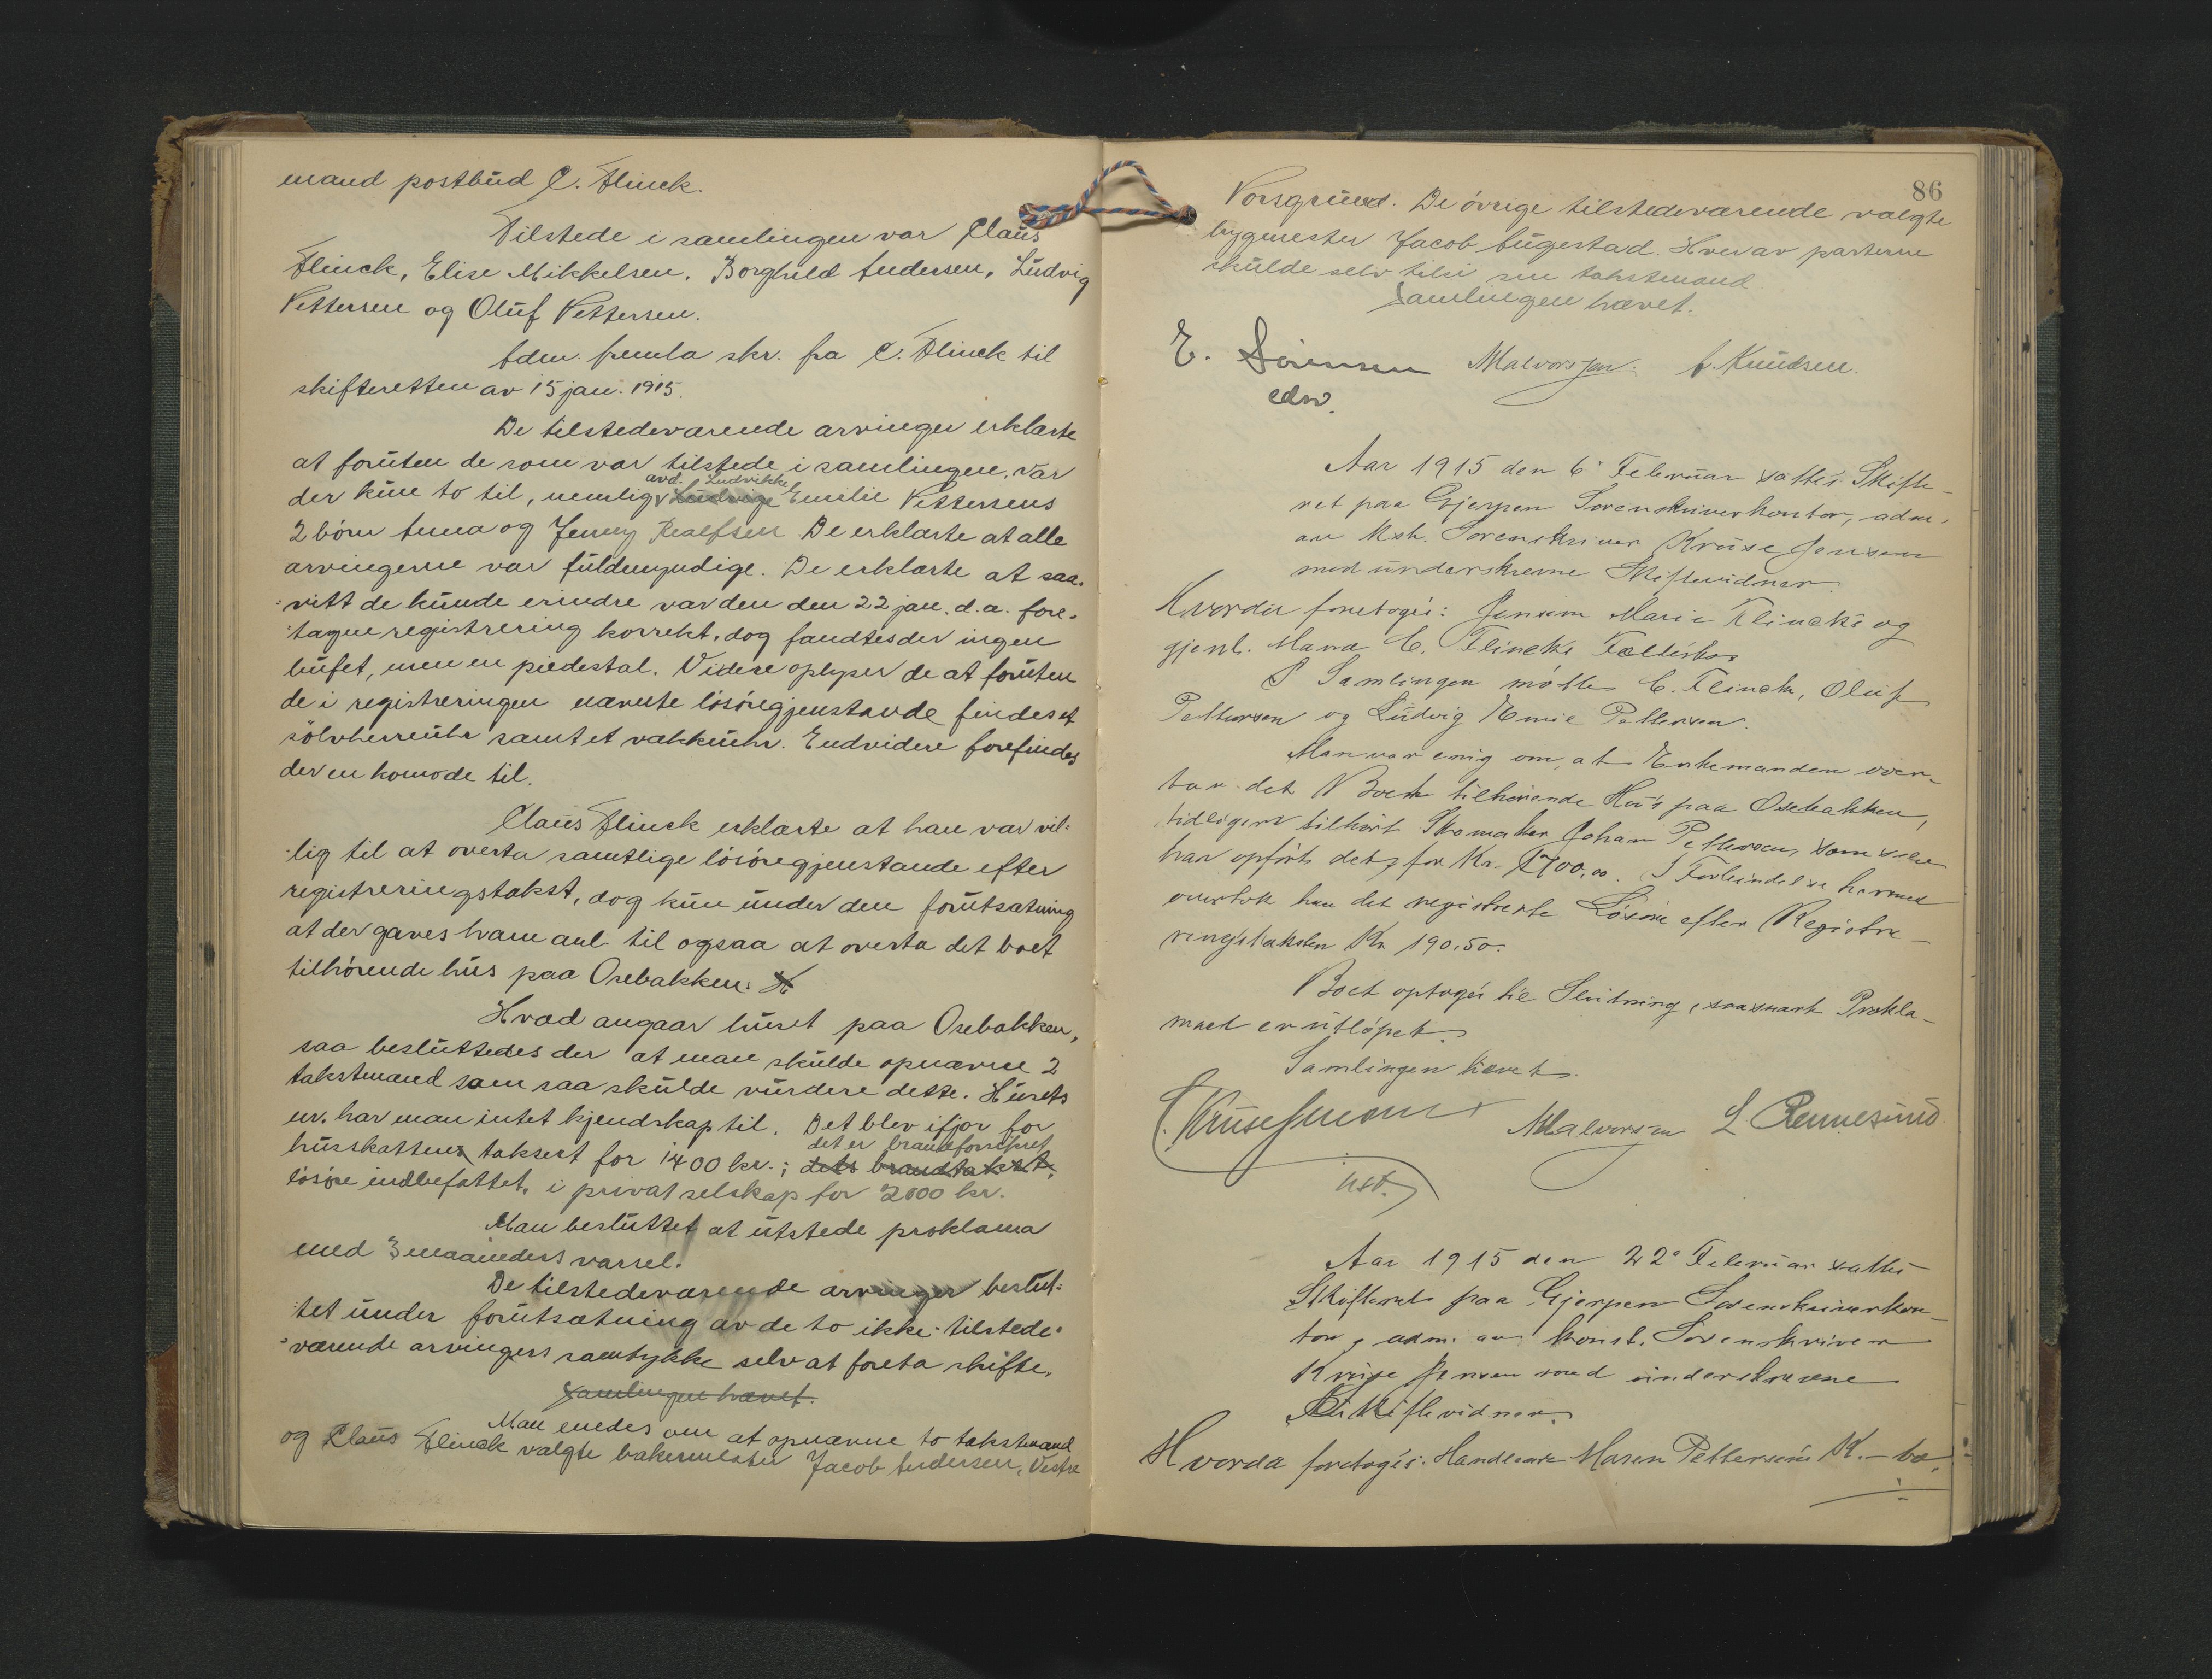 mand postbud C. Flinck.
Tilstede i samlingen var Claus
Flinck, Elise Mikkelsen, Borghild Andersen, Ludvig
Pettersen og Oluf Pettersen.
Adm. fremla skr. fra C. Flinck til
skifteretten av 15 jan. 1915.
De tilstedeværende arvinger erklærte
at foruten de som var tilstede i samlingen, var
avd. Ludvikke
der kun to til, nemlig Ludvige Emilie Pettersens
2 børn Anna og Jenny Realfsen De erklærte at alle
arvingerne var fuldmyndige. De erklærte at saa-
vitt de kunde erindre var den den 22 jan. d.a. fore-
tagne registrering korrekt, dog fandtes der ingen
bufet, men en piedestal. Videre oplyser de at foruten
de i registreringen nævnte løsøregjenstande findes et
sølvherreuhr samt et vækkeuhr. Endvidere forefindes
der en komode til.
Claus Flinck erklærte at han var vil-
lig til at overta samtlige løsøregjenstande efter
registreringstakst, dog kun under den forutsætning
at der gaves ham anl. til ogsaa at overta det boet
tilhørende hus paa Osebakken.
Hvad angaar huset paa Osebakken,
saa besluttedes der at man skulde opnævne 2
takstmænd som saa skulde vurdere dette. Husets
nr. har man intet kjendskap til. Det blev ifjor for
det er brandforsikret
husskatten taksert for 1400 kr.; dets brandtakst,
løsøre indbefattet, i privat selskap for 2000 kr.
Man besluttet at utstede proklama
med 3 maaneders varsel.
De tilstedeværende arvinger beslut-
tet under forutsætning av de to ikke-tilstede-
værende arvingers samtykke selv at foreta skifte.
Samlingen hævet.
Man enedes om at opnævne to takstmænd
og Claus Flinck valgte bakermester Jacob Andersen, Vestre
86
Porsgrund. De øvrige tilstedeværende valgte
bygmester Jacob Bugestad. Hver av parterne
skulde selv tilsi sin takstmand
Samlingen hævet.
E. Sørensen Malvorsen. A. Knudsen.
edsv.
Aar 1915 den 6' Februar sattes Skifte-
ret paa Gjerpen Sorenskriverkontor, adm.
av Kst. Sorenskriver Kruse Jensen
med underskrevne Skiftevidner.
Hvorda foretoges: Jensine Marie Flincks og
gjenl. Mand C. Flincks Fællesbo
I Samlingen møtte C. Flinck, Oluf
Pettersen og Ludvig Emil Pettersen.
Man var enig om, at Enkemanden over-
tar det Boet tilhørende Hus paa Osebakken,
tidligere tilhørt Skomaker Johan Pettersen, som selv
har opført det, for Kr. 1700,00. I Forbindelse hermed
overtok han det registrerte Løsøre efter Registre-
ringstaksten Kr. 190.50.
Boet optoges til Slutning, saasnart Prokla-
maet er utløpet.
Samlingen hævet.
Kruse Jensen Malvorsen L. Rennesund
kst.
Aar 1915 den 22' Februar sattes
Skifteret paa Gjerpen Sorenskriverkon-
tor, adm. av konst. Sorenskriver
Kruse Jensen med underskrevne
Skiftevidner.
Hvorda foretoges: Handlende Maren Pettersens K.-bo.